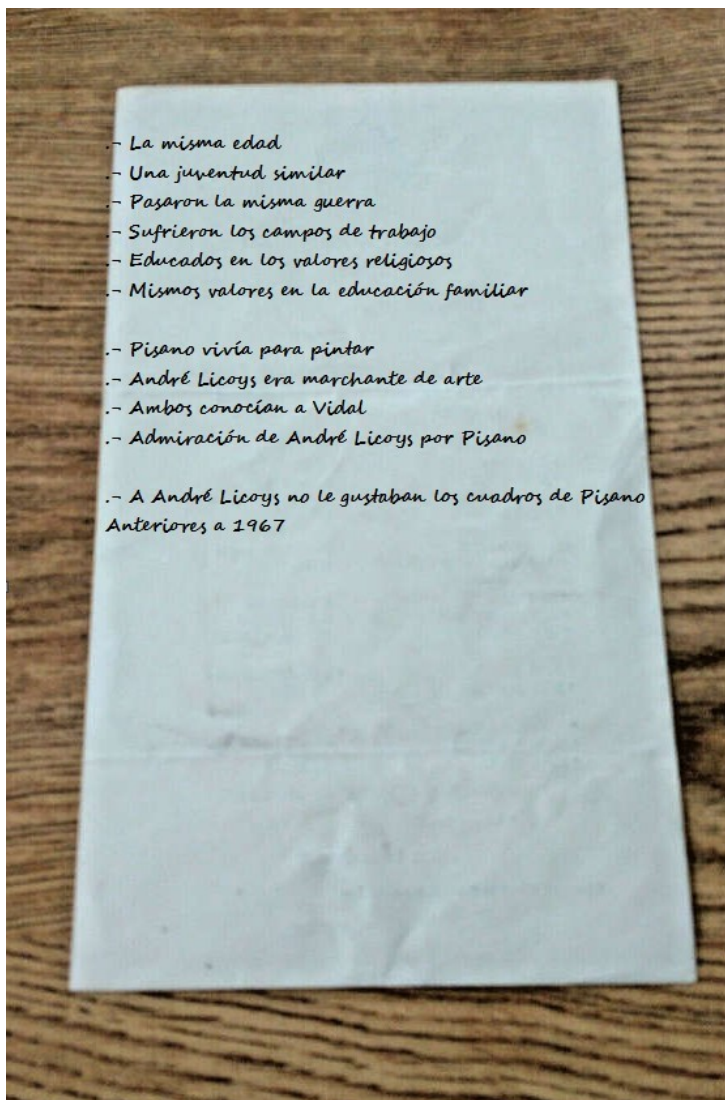 .- La misma edad
.- Una juventud similar
.- Pasaron la misma guerra
.- Sufrieron los campos de trabajo
.- Educados en los valores religiosos
.- Mismos valores en la educación familiar
.- Pisano vivía para pintar
.- André Licoys era marchante de arte
.- Ambos conocían a Vidal
.- Admiración de André Licoys por Pisano
.- A André Licoys no le gustaban los cuadros de Pisano
Anteriores a 1967